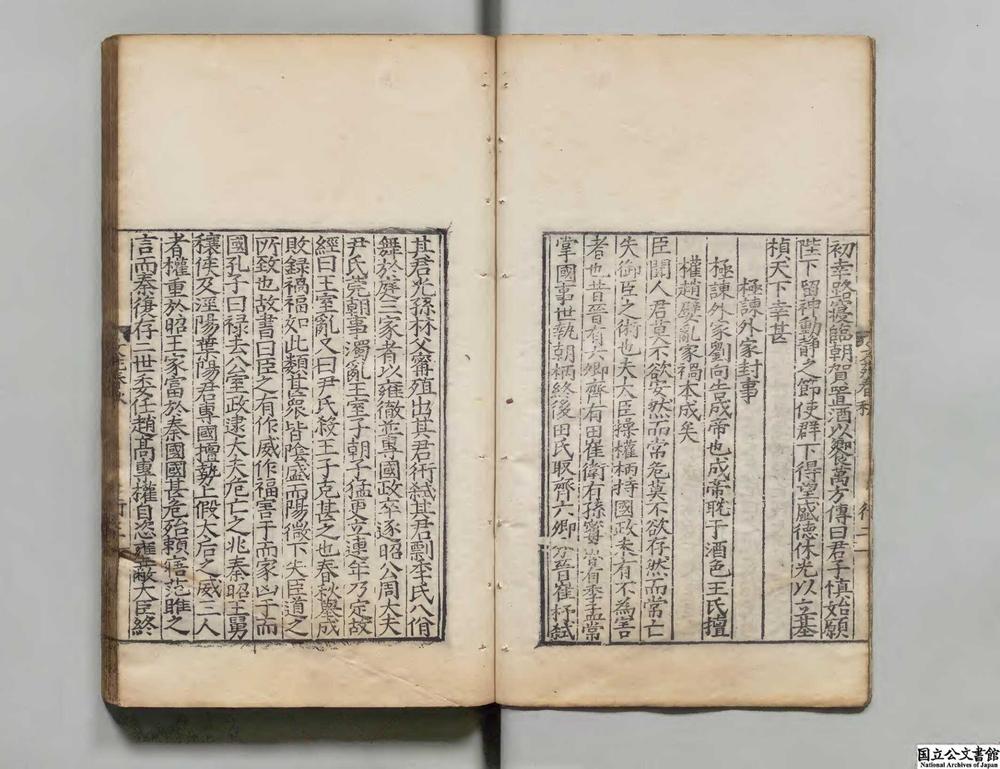 初幸路寢臨朝賀置酒以饗萬方傳曰君子慎始願
陛下留神動靜之節使群下得望盛德休光以立基
楨天下幸甚
極諫外家封事
極諫外家劉向告成帝也成帝耽于酒色王氏擅
權趙孽亂家禍本成矣
臣聞人君莫不欲安然而常危莫不欲存然而常亡
失御臣之術也夫大臣操權柄持國政未有不為害
者也昔晉有六卿齊有田崔衛有孫甯魯有季孟常
掌國事世執朝柄終後田氏取齊六卿分晉崔杼弒
其君光孫林父甯殖出其君衎弒其君剽季氏八佾
舞於庭三家者以雍徹並專國政卒逐昭公周大夫
尹氏筦朝事濁亂王室子朝子猛更立連年乃定故
經曰王室亂又曰尹氏殺王子克甚之也春秋舉成
敗録禍福如此類甚衆皆陰盛而陽微下失臣道之
所致也故書曰臣之有作威作福害于而家凶于而
國孔子曰禄去公室政逮大夫危亡之兆秦昭王舅
穰侯及涇陽葉陽君專國擅勢上假太后之威三人
者權重於昭王家富於秦國國甚危殆賴寤范雎之
言而秦復存二世委任趙高專權自恣壅蔽大臣終
国立公文書館
National Archives of Japan